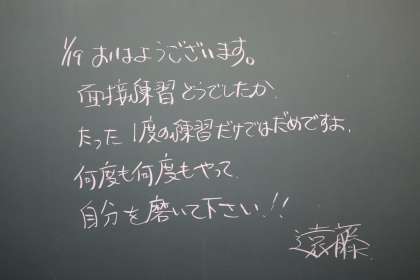 1/19 おはようございます。
面接練習どうでしたか.
たった1度の練習だけではだめですよ.
何度も何度もやって.
自分を磨いて下さい!!
遠藤